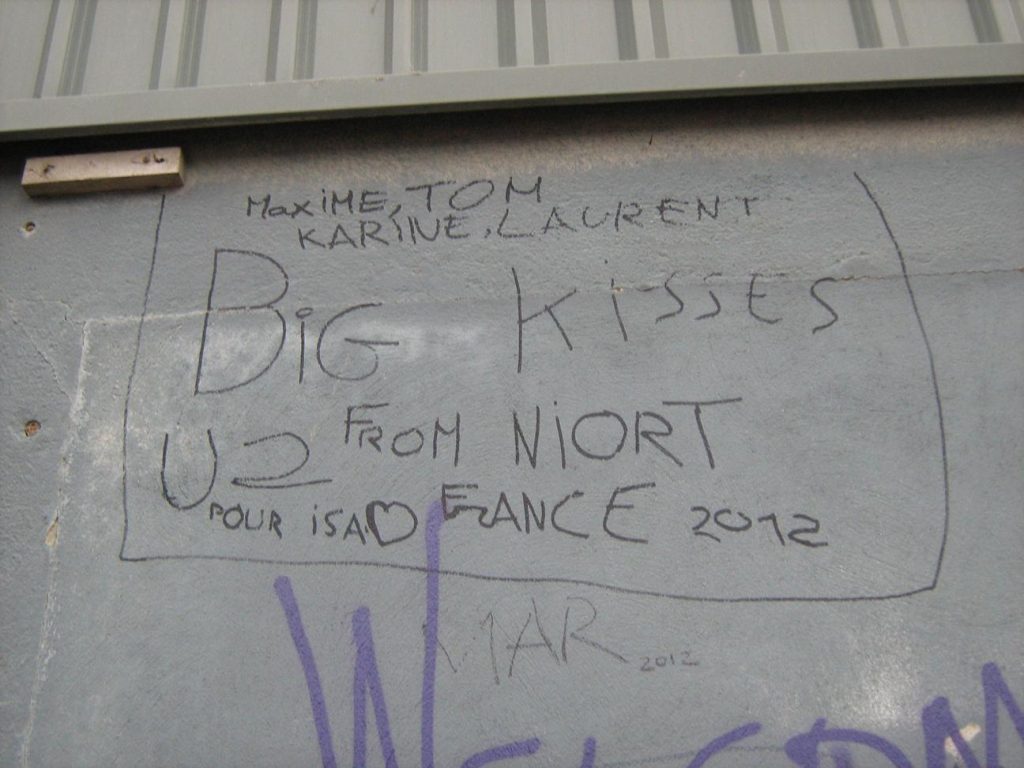 MaxiME, TOM
KARINE, LAURENT
BiG KiSSES
U2 FROM NiORT
POUR iSA♡ FRANCE 2012
MAR 2012